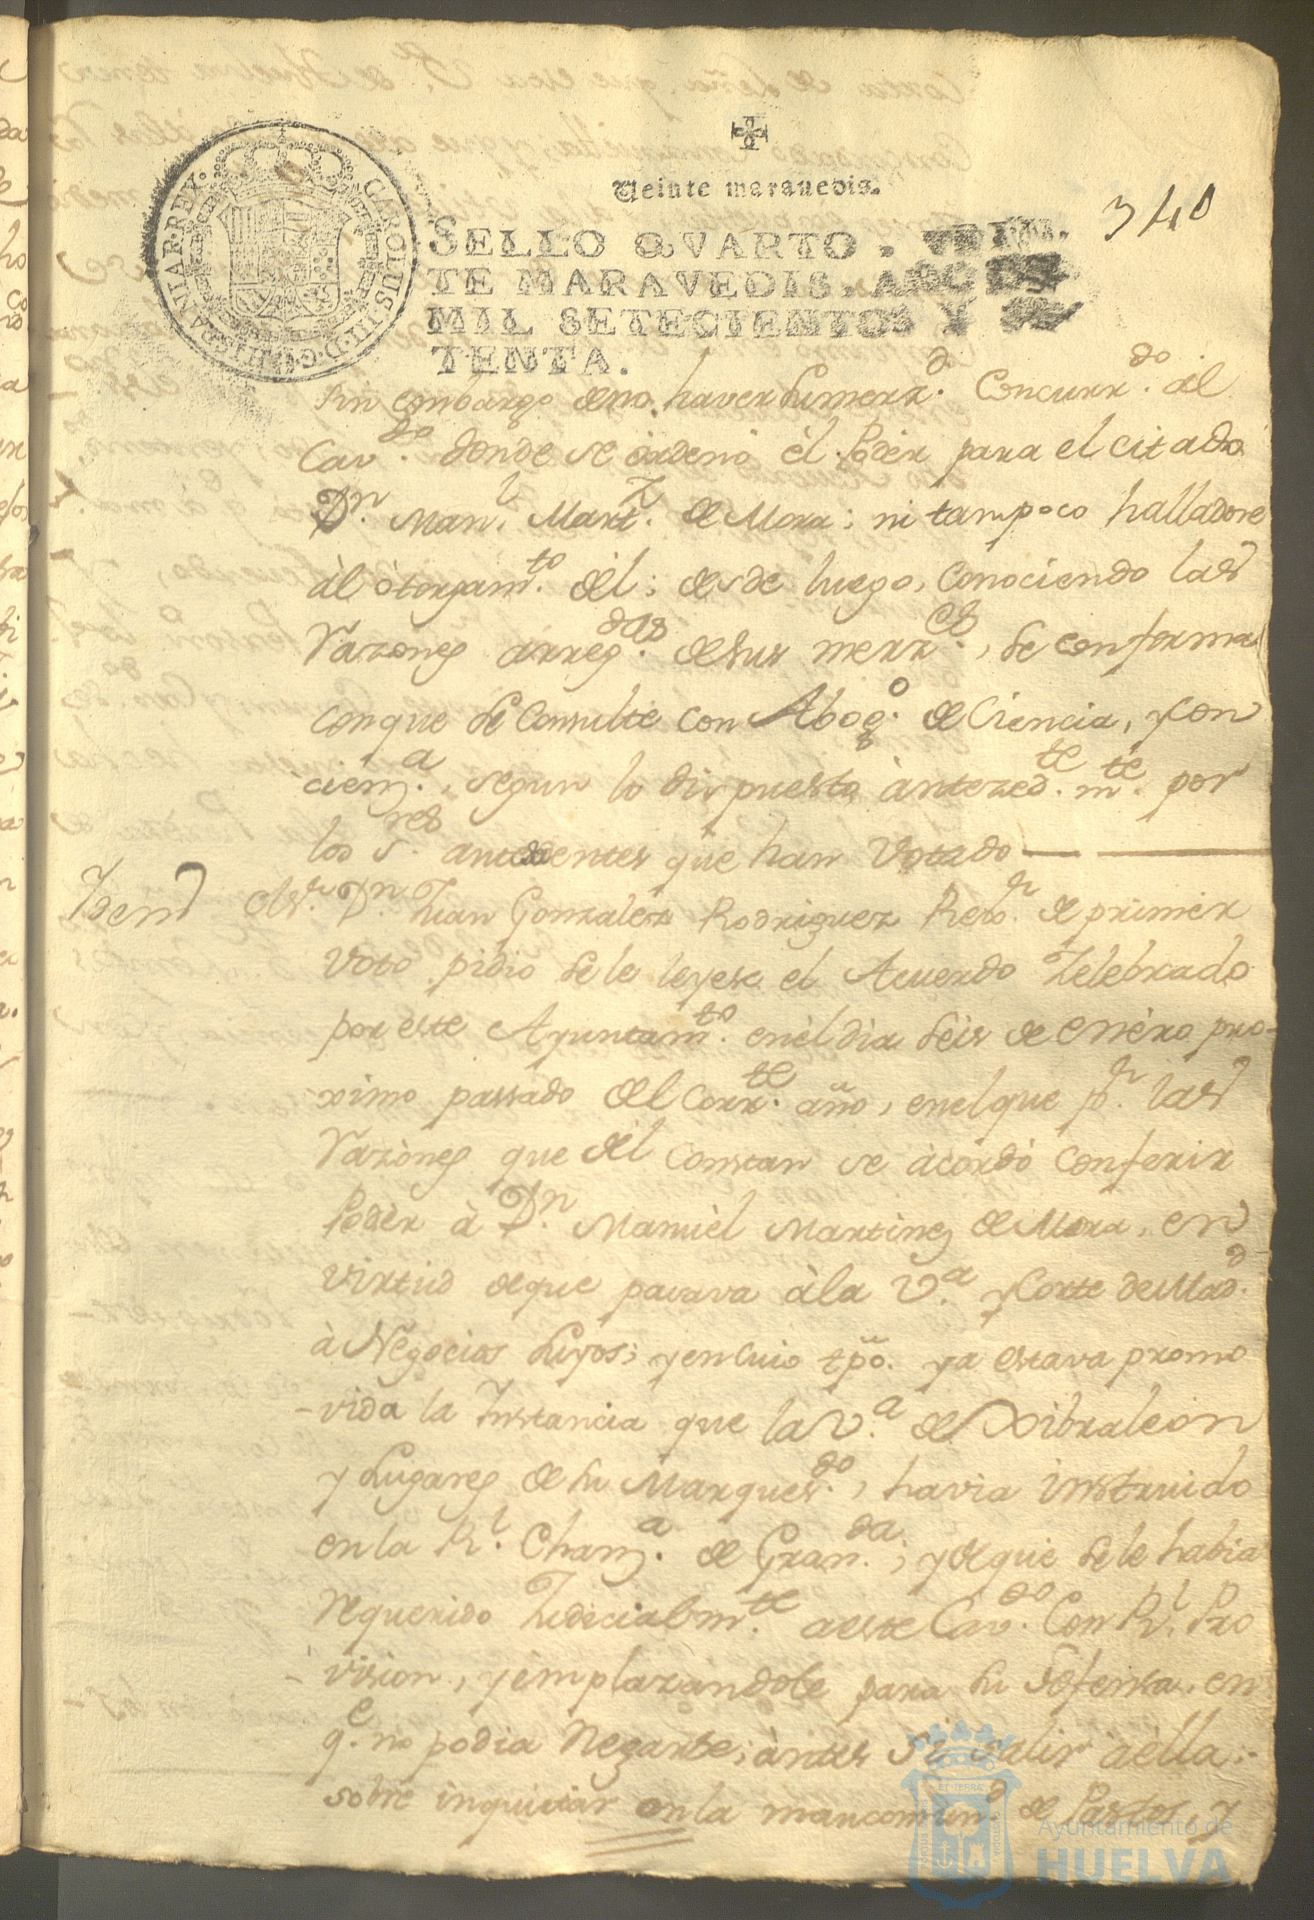 Veinte maravedis.
340
SELLO QVARTO, VEIN-
TE MARAVEDIS, AÑO DE
MIL SETECIENTOS Y
TENTA.
CAROLUS III D.G. HISPANIAR. REX.
sin embargo de no haver sumerz.d Concurr.do al
Cav.do donde se òrdenó èl Podèr para el citado
Dn. Man.l Mart.z de Mora; ni tampoco halladose
àl òtorgam.to del; desde luego, conociendo las
Razònes arreg.das de sus merz.es, se conforma
con que se Consulte con Abog.o de Ciencia, y con
cienz.a, segun lo dispuesto àntezed.te m.te por
los S.res antecedentes que han Votado
Iten El s.r Dn. Juan Gonzalez Rodriguez Rexo.r de primer
Voto pidio se le leyese el Acuerdo Zelebrado
por este Ayuntam.to en èl dia sèis de enèro pro-
ximo passado del Corr.te año, en el que p.r las
Razònes que dèl Constan se àcordò Conferir
Podèr à Dn. Manuèl Martinez de Mora, en
virtud de que pasava à la V.a y Corte de Mad.d
à Negocios suyos; y en cuio tpo. ya estava promo
-vida la Instancia que la V.a de Xibraleòn
y Lugares de su Marques.do, havia instruido
en la R.l Chanz.a de Gran.da; y de que se le habia
Requerido Judicialm.te a este Cav.do Con R.l Pro
-vision, y èmplazàndole para su Defensa, en
q.e no podia Negarse; àntes si salir aèlla;
sobre inquietar en la mancomun.d de Pastos, y
Ayuntamiento de
HUELVA